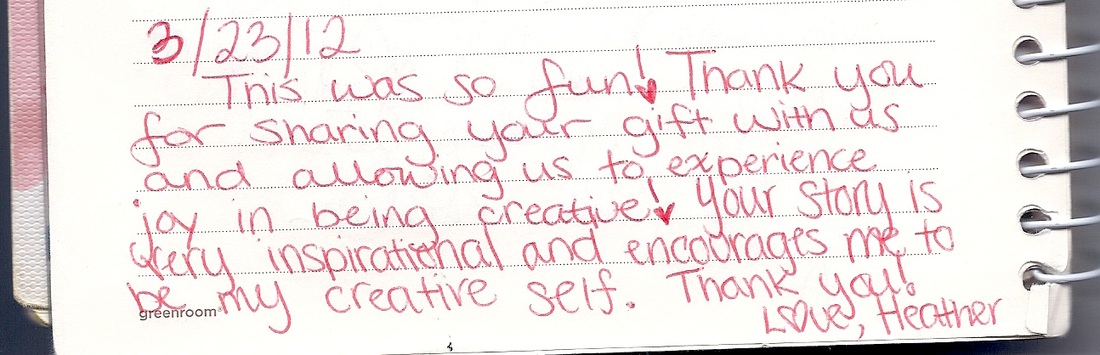 3/23/12
This was so fun! Thank you
for sharing your gift with us
and allowing us to experience
joy in being creative! Your story is
very inspirational and encourages me to
be my creative self. Thank you!
greenroom®
Love, Heather